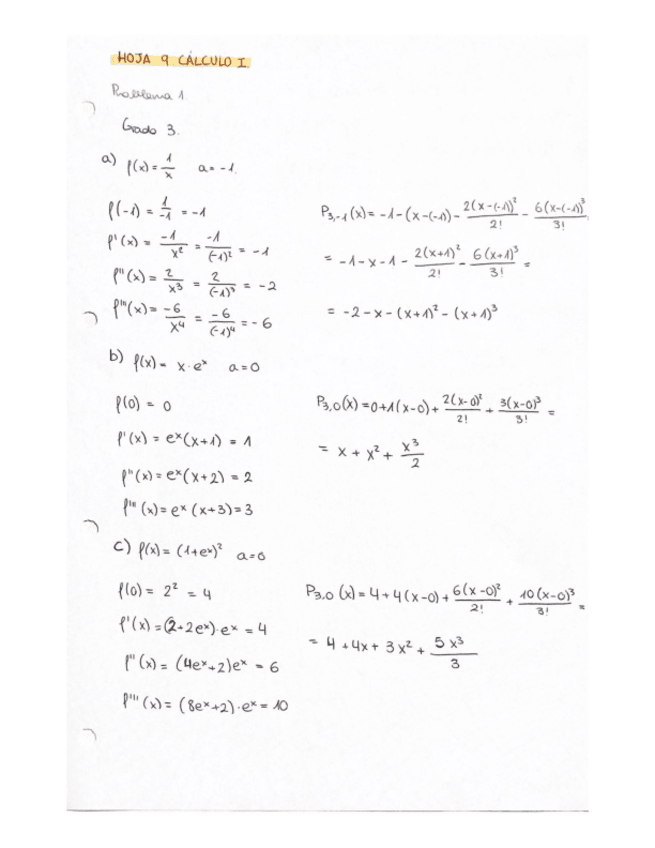 HOJA 9 CÁLCULO I.
Problema 1.
Grado 3.
a) f(x) = 1/x a = -1.
f(-1) = 1/-1 = -1
f'(x) = -1/x² = -1/(-1)² = -1
f''(x) = 2/x³ = 2/(-1)³ = -2
f'''(x) = -6/x⁴ = -6/(-1)⁴ = -6
P₃,₋₁(x) = -1-(x-(-1)) - 2(x-(-1))²/2! - 6(x-(-1))³/3!
= -1-x-1 - 2(x+1)²/2! - 6(x+1)³/3! =
= -2-x-(x+1)²-(x+1)³
b) f(x) = x·eˣ a=0
f(0) = 0
f'(x) = eˣ(x+1) = 1
f''(x) = eˣ(x+2) = 2
f'''(x) = eˣ(x+3) = 3
P₃,₀(x) = 0+1(x-0) + 2(x-0)²/2! + 3(x-0)³/3! =
= x + x² + x³/2
c) f(x) = (1+eˣ)² a=0
f(0) = 2² = 4
f'(x) = (2+2eˣ)·eˣ = 4
f''(x) = (4eˣ+2)eˣ = 6
f'''(x) = (8eˣ+2)·eˣ = 10
P₃,₀(x) = 4+4(x-0) + 6(x-0)²/2! + 10(x-0)³/3! =
= 4+4x+3x² + 5x³/3